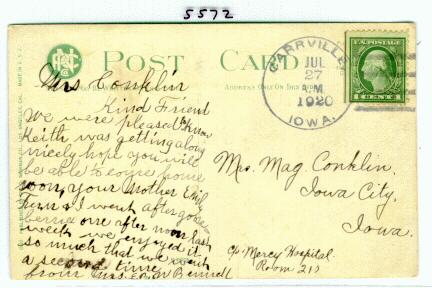 5572
POST CARD
ADDRESS ONLY ON THIS
MADE IN U.S.A.
U.S. POSTAGE
1 CENT 1
JUL
27
M
1920
IOWA.
Mrs Conklin
Kind Friend
We were pleased to know
Keith was getting along
nicely hope you will
be able to come home
soon, your Mother
Fern & I went after goose
berries one after noon last
week we enjoyed it
so much that we went
a second time
from Mrs. Bennett
Mrs. Mag. Conklin.
Iowa City,
Iowa.
c/o Mercy Hospital.
Room 210